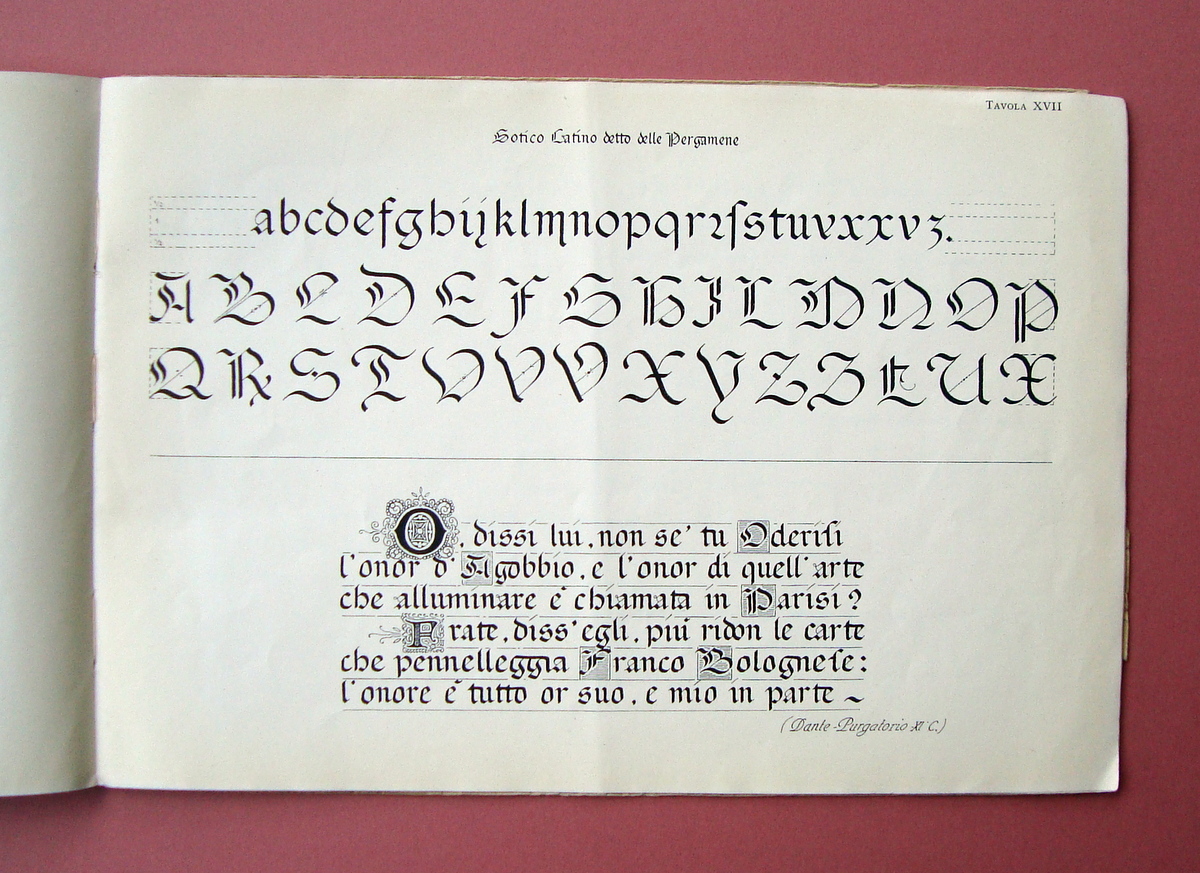 TAVOLA XVII
Gotico Latino detto delle Pergamene
abcdefghijklmnopqrꝛſstuvxxyz.
A B C D E F G H I L M N O P
Q R S T V V V X Y Z Z E U X
O, dissi lui, non se' tu Oderiſi
l'onor d' Agobbio, e l'onor di quell' arte
che alluminare è chiamata in Parisi?
Frate, diss' egli, più ridon le carte
che pennelleggia Franco Bologneſe:
l'onore è tutto or suo, e mio in parte ~
(Dante-Purgatorio-XI° C.)